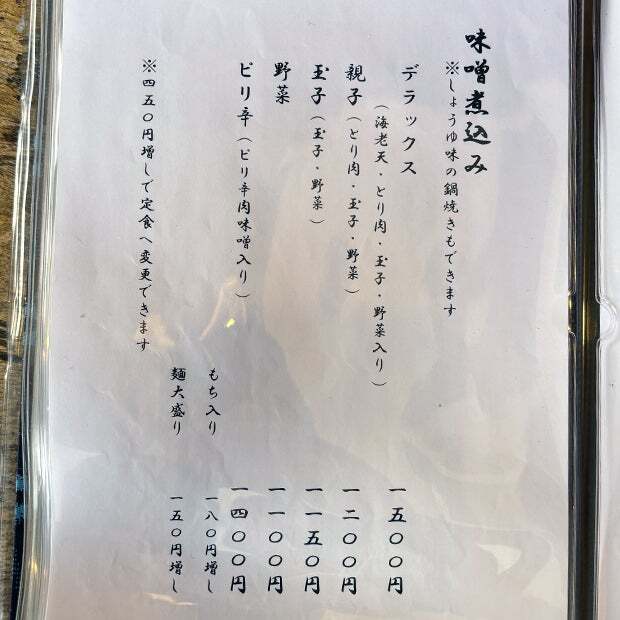 味噌煮込み
※しょうゆ味の鍋焼きもできます
デラックス 一五〇〇円
（海老天・とり肉・玉子・野菜入り）
親子（とり肉・玉子・野菜） 一二〇〇円
玉子（玉子・野菜） 一一五〇円
野菜 一一〇〇円
ピリ辛（ピリ辛肉味噌入り） 一四〇〇円
もち入り 一八〇円増し
麺大盛り 一五〇円増し
※四五〇円増しで定食へ変更できます